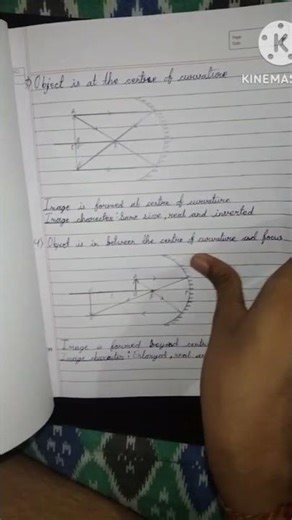 Page
Date
KINEMAS
Object is at the centre of curvature
Image is formed at centre of curvature
Image character: Same size, real and inverted
4) Object is in between the centre of curvature and focus
Image is formed beyond
Image character: Enlarged, real